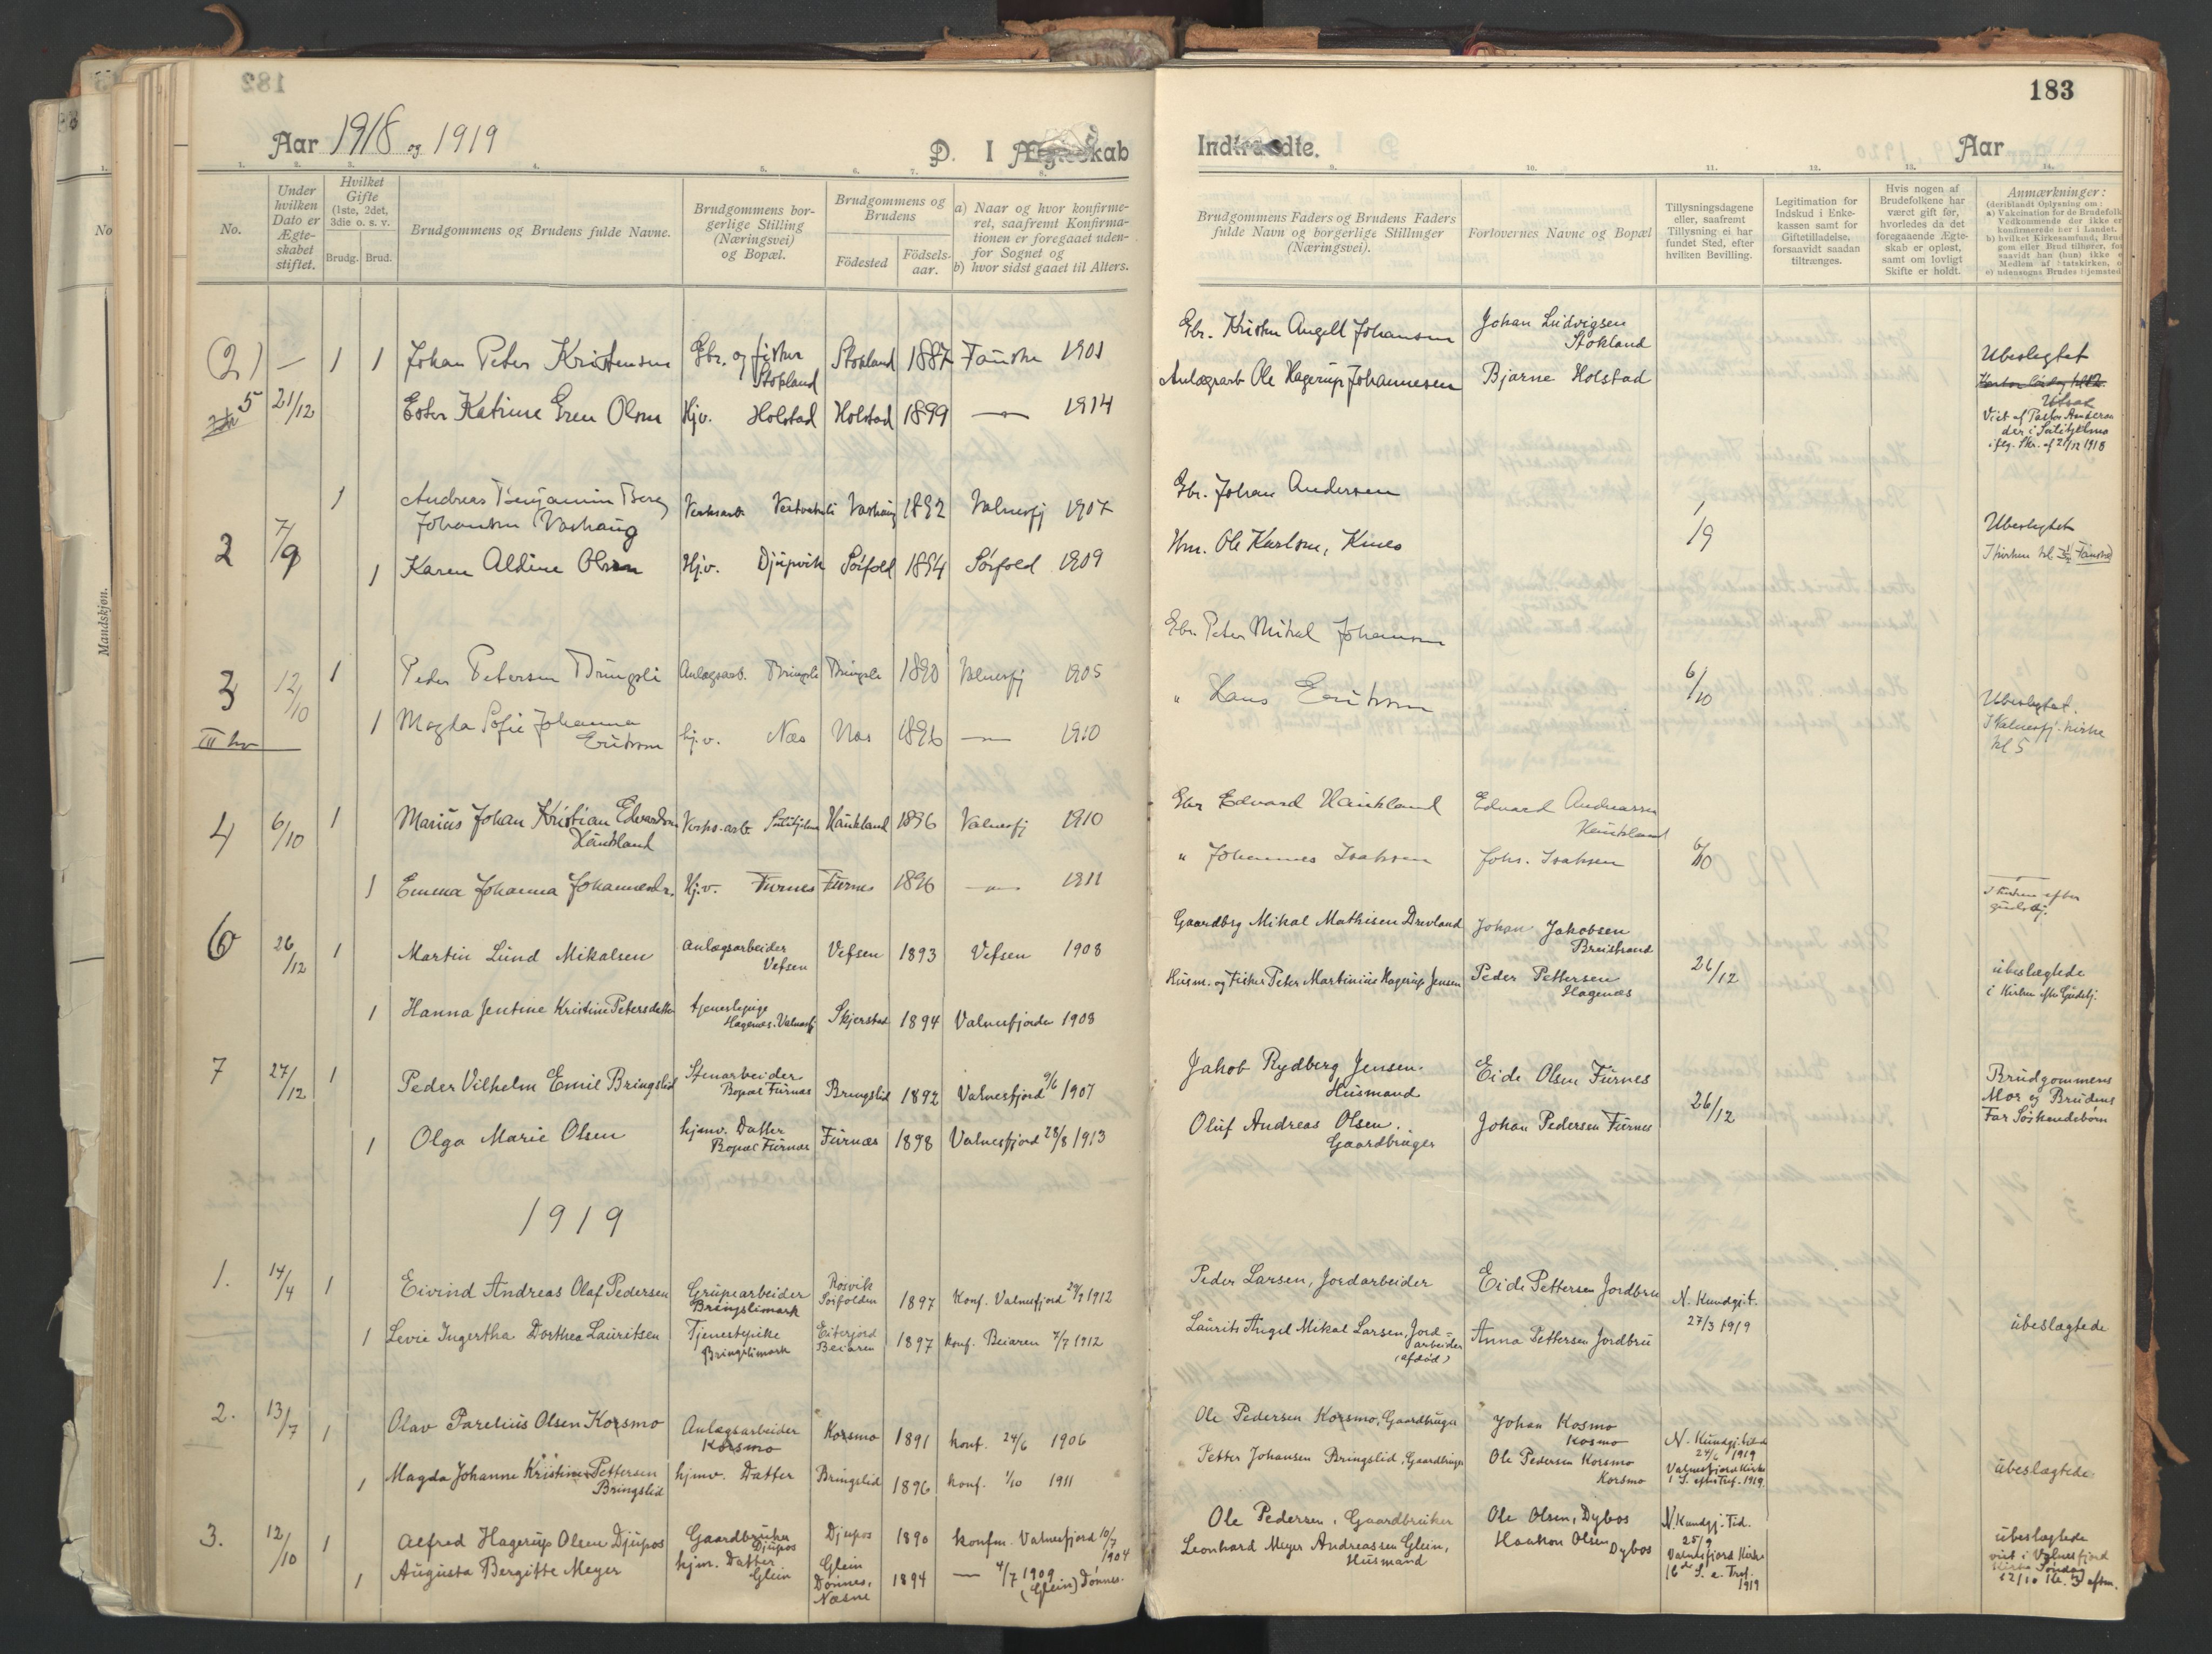 183
Aar 1918 og 1919
D. I Ægteskab
Indtraadte.
Aar
1. 2. 3. 4. 5. 6. 7. 8. 9. 10. 11. 12. 13. 14.
No.
Under hvilken Dato er Ægteskabet stiftet.
Hvilket Gifte (1ste, 2det, 3die o. s. v.
Brudg. Brud.
Brudgommens og Brudens fulde Navne.
Brudgommens borgerlige Stilling (Næringsvei) og Bopæl.
Brudgommens og Brudens
Födested
Födselsaar.
a) Naar og hvor konfirmeret, saafremt Konfirmationen er foregaaet udenfor Sognet og
b) hvor sidst gaaet til Alters.
Brudgommens Faders og Brudens Faders fulde Navn og borgerlige Stillinger (Næringsvei).
Forlovernes Navne og Bopæl
Tillysningsdagene eller, saafremt Tillysning ei har fundet Sted, efter hvilken Bevilling.
Legitimation for Indskud i Enkekassen samt for Giftetilladelse, forsaavidt saadan tiltrænges.
Hvis nogen af Brudefolkene har været gift før, hvorledes da det foregaaende Ægteskab er opløst, samt om lovligt Skifte er holdt.
Anmærkninger:
(deriblandt Oplysning om:
(2) — 1 1 Johan Peter Kristensen Gbr. og fisker Stokland Stokland 1887 Fauske 1901
Gbr. Kristen Angell Johansen
Johan Ludvigsen Stokland
Ubeslegtet
5 21/12 Ester Katrine Eren Olsen Hj.v. Holstad Holstad 1899 — 1914
Anlægsarb Ole Hagerup Johannesen
Bjarne Holstad
Viet af Pastor
i flg. Skr. af 21/12 1918
2 7/9 1 Andreas Benjamin Berg Johansen Vashaug Verksarb. Vashaug 1892 Valnesfj 1907
Gbr. Johan Andersen
1/9
Ubeslegtet
1 Karen Aldine Olsen Hj.v. Djupvik Sörfold 1894 Sörfold 1909
Hm. Ole Karlsen, Kines
3 12/10 1 Peder Petersen Bringsli Anlægsarb. Bringsli Bringsli 1890 Valnesfj 1905
Gbr. Peter Mikal Johansen
6/10
1 Magda Sofie Johanna Eriksen hj.v. Næs Næs 1896 — 1910
" Hans Eriksen
Ubeslegtet.
I Valnesfj. kirke
kl 5
4 6/10 1 Marius Johan Kristian Edvardsen Haukland Verks.arb Sulitjelma Haukland 1896 Valnesfj 1910
Gbr Edvard Haukland
Edvard Andreassen Haukland
6/10
1 Emma Johanna Johannesdr. Hj.v. Furnes Furnes 1896 — 1911
" Johannes Isaksen
Johs. Isaksen
I kirken efter gudstj.
6 26/12 1 Martin Lund Mikalsen anlægsarbeider Vefsen Vefsen 1893 Vefsen 1908
Gaardbrg Mikal Mathisen Drevland
Johan Jakobsen Breistrand
26/12
ubeslægtede
i Kirken efter Gudstj.
1 Hanna Jentine Kristine Petersdatter tjenestepige Hagenæs. Valnesfj Skjerstad 1894 Valnesfjorden 1908
Husm. og Fisker Peter Martinius Hagerup Jensen
Peder Pettersen Hagenæs
7 27/12 1 Peder Vilhelm Emil Bringslid Stenarbeider Bopæl Furnæs Bringslid 1892 Valnesfjord 9/6 1907
Jakob Rydberg Jensen. Husmand
Eide Olsen Furnes
26/12
Brudgommens
Mor og Brudens
Far Söskendebörn
1 Olga Marie Olsen hjmv. Datter Bopæl Furnæs Furnæs 1898 Valnesfjord 28/8 1913
Oluf Andreas Olsen. Gaardbruger
Johan Pedersen Furnes
1919
1. 14/4 1 Eivind Andreas Olaf Pedersen Grupearbeider Bringslimark Rösvik Sörfolden 1897 Konf. Valnesfjord 29/9 1912
Peder Larsen, Jordarbeider
Eide Pettersen Jordbru
N. Kundgj.t.
27/3 1919
1 Levie Ingertha Dorthea Lauritsen Tjenestepike Bringslimark Eiterjord Beiaren 1897 konf. Beiaren 7/7 1912
Laurits Angel Mikal Larsen, Jordarbeider (afdöd)
Anna Pettersen Jordbru
ubeslægtede
2. 13/7 1 Olav Parelius Olsen Korsmo Anlægsarbeider Korsmo Korsmo 1891 konf. 24/6 1906
Ole Pedersen Korsmo, Gaardbruger
Johan Kosmo Kosmo
N. Kundgj.tid
24/6 1919
1 Magda Johanne Kristine Pettersen Bringslid hjmv. Datter Bringslid 1896 konf. 1/10 1911
Petter Johansen Bringslid, Gaardbruger
Ole Pedersen Korsmo Korsmo
Valnesfjord Kirke
1 S. efter Tref. 1919
ubeslægtede
3. 12/10 1 Alfred Hagerup Olsen Djupos Gaardbruker Djupos Djupos 1890 konfm. Valnesfjord 10/7 1904
Ole Pedersen, Gaardbruker
Ole Olsen, Dybos
N. Kundgj. Tid.
25/9
1 Augusta Bergitte Meyer hjm. Datter Glein Glein Dönnes, Næsne 1894 — 4/7 1909 (Glein) Dönnes.
Leonhard Meyer Andreassen Glein, Husmand
Haakon Olsen Dybos
Valnesfjord Kirke
16de S. e. Tref. 1919
ubeslægtede
viet i Valnesfjord
Kirke Söndag
12/10 kl. 3 eftm.